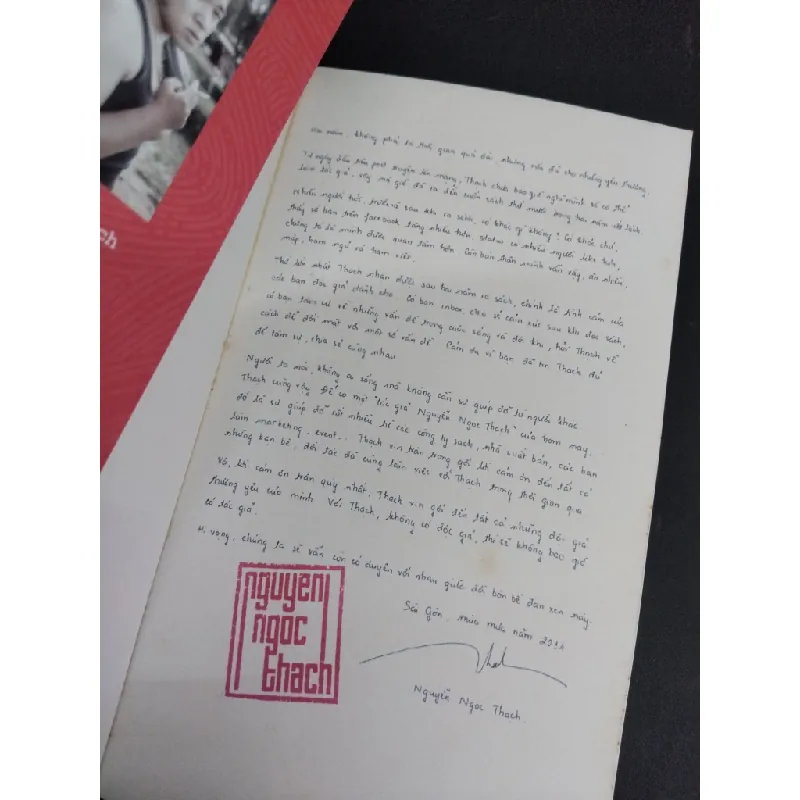 ch
năm, không phải là thời gian quá dài, nhưng vừa đủ cho những yêu thương.
Từ ngày đầu tiên post truyện lên mạng, Thạch chưa bao giờ nghĩ mình sẽ có thể
làm tác giả, vậy mà giờ đã ra đến cuốn sách thứ mười trong hai năm
Nhiều người hỏi, trước và sau khi ra sách, có khác gì không? Có khác chứ,
thấy số bạn trên facebook tăng nhiều hơn, status có nhiều người like hơn,
chứng tỏ là mình được quan tâm hơn. Còn bản thân mình vẫn vậy, ăn nhiều,
mập, ham ngủ và ham viết.
Thứ lớn nhất Thạch nhận được sau hai năm ra sách, chính là tình cảm của
các bạn độc giả dành cho. Có bạn inbox chia sẻ cảm xúc sau khi đọc sách,
có bạn tâm sự về những vấn đề trong cuộc sống và đôi khi, hỏi Thạch về
cách để đối mặt với một số vấn đề. Cảm ơn vì bạn đã tin Thạch đủ
để tâm sự, chia sẻ cùng nhau.
Người ta nói, không ai sống mà không cần sự giúp đỡ từ người khác.
Thạch cũng vậy. Để có một "tác giả Nguyễn Ngọc Thạch" của hôm nay,
đó là sự giúp đỡ rất nhiều từ các công ty sách, nhà xuất bản, các bạn
làm marketing, event... Thạch xin trân trọng gởi lời cảm ơn đến tất cả
những bạn bè, đối tác đã cùng làm việc với Thạch trong thời gian qua.
Và, lời cảm ơn trân quý nhất, Thạch xin gởi đến tất cả những độc giả
thương yêu của mình. Với Thạch, không có độc giả, thì sẽ không bao giờ
có tác giả.
Hi vọng, chúng ta sẽ vẫn còn có duyên với nhau giữa đời bộn bề đan xen này.
Sài Gòn, mùa mưa năm
nguyen
ngoc
thach
Nguyễn Ngọc Thạch.